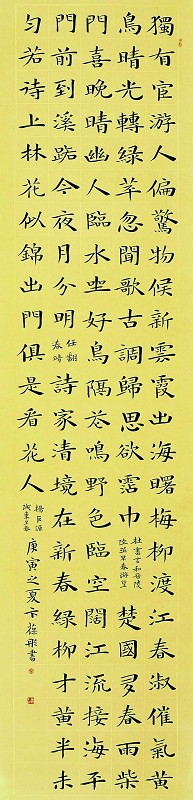 獨有宦游人偏驚物候新雲霞出海曙梅柳渡江春淑催氣黃
鳥晴光轉綠苹忽聞歌古調歸思欲霑巾
杜審言和晉陵
陸丞早春游望
楚國多春雨柴
門喜晚晴幽人臨水坐好鳥隔花鳴野色臨空闊江流接海平
門前到溪路今夜月分明
任翻
春晴
詩家清境在新春綠柳才黃半未
勻若待上林花似錦出門俱是看花人
楊巨源
城東早春
庚寅之夏卞葆彤書